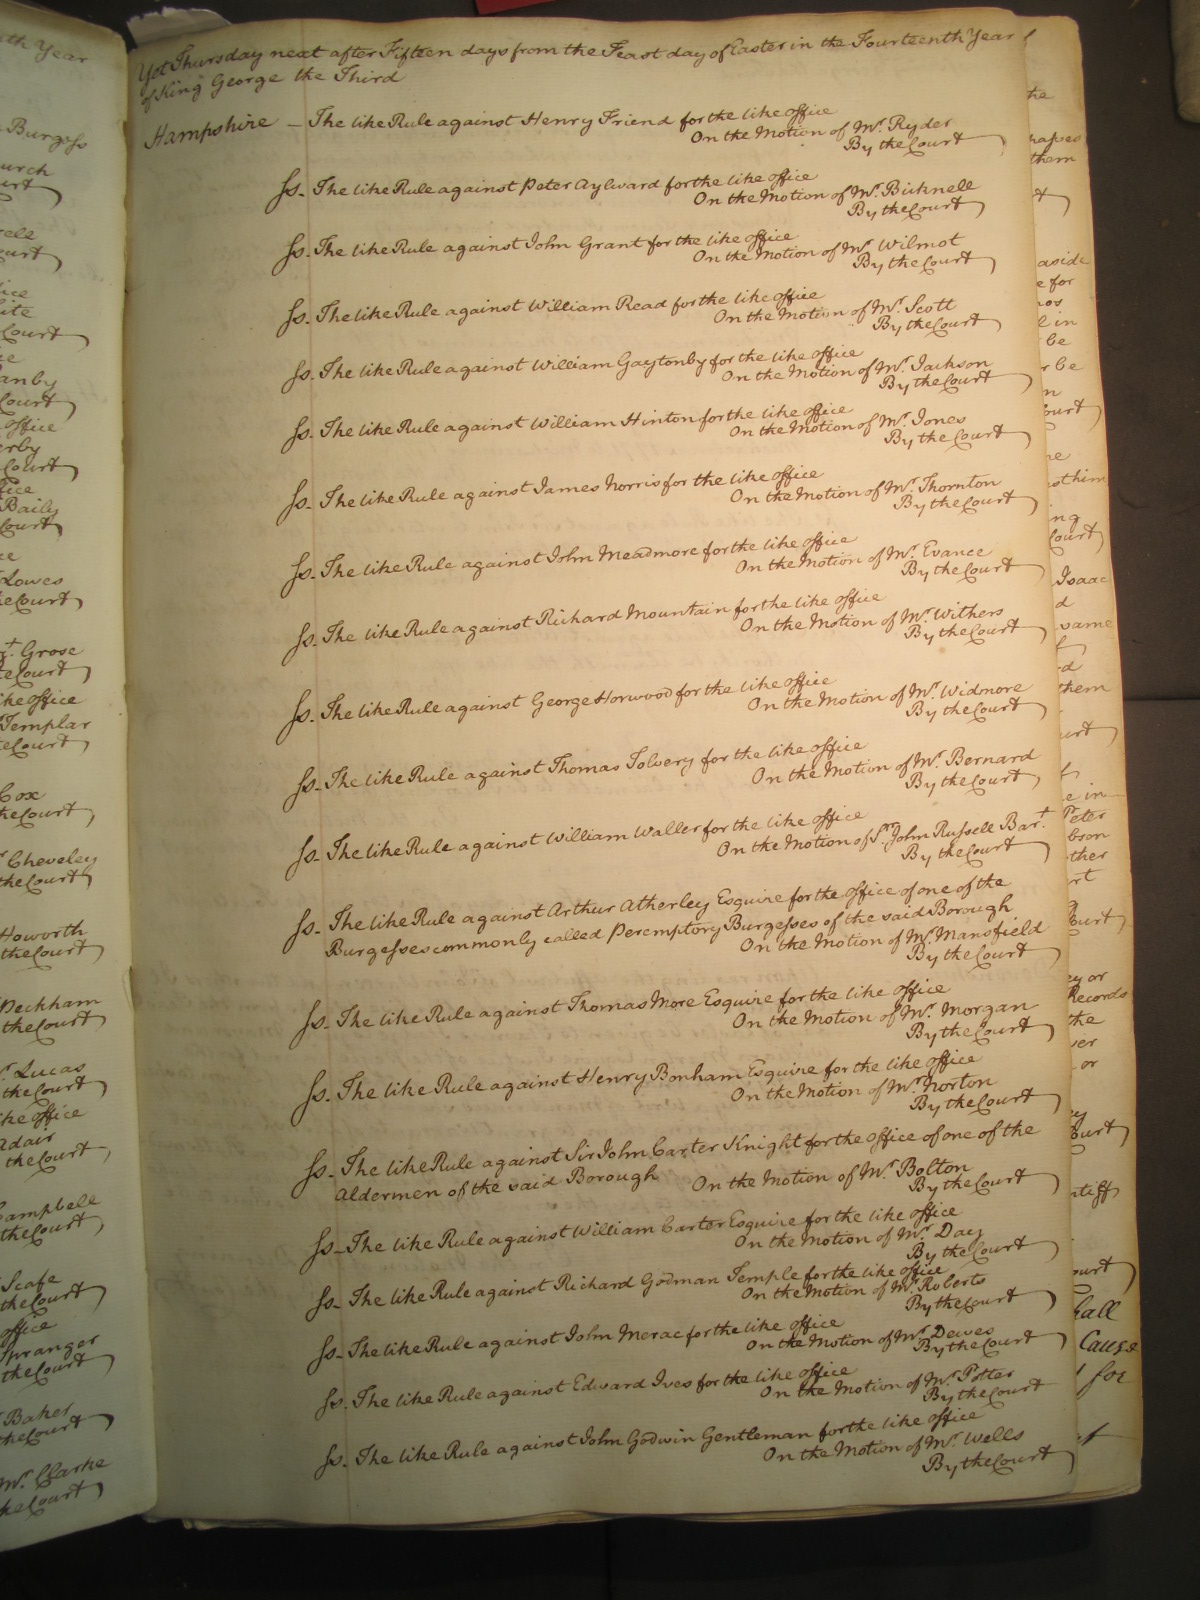 Yet Thursday next after Fifteen days from the Feast day of Easter in the Fourteenth Year
of King George the Third
Hampshire — The like Rule against Henry Friend for the like office
On the Motion of Mr. Ryder
By the Court
Ss. The like Rule against Peter Aylward for the like office
On the Motion of Mr. Bicknell
By the Court
Ss. The like Rule against John Grant for the like office
On the Motion of Mr. Wilmot
By the Court
Ss. The like Rule against William Read for the like office
On the Motion of Mr. Scott
By the Court
Ss. The like Rule against William Gaytonby for the like office
On the Motion of Mr. Jackson
By the Court
Ss. The like Rule against William Hinton for the like office
On the Motion of Mr. Jones
By the Court
Ss. The like Rule against James Norris for the like office
On the Motion of Mr. Thornton
By the Court
Ss. The like Rule against John Meadmore for the like office
On the Motion of Mr. Evance
By the Court
Ss. The like Rule against Richard Mountain for the like office
On the Motion of Mr. Withers
By the Court
Ss. The like Rule against George Horwood for the like office
On the Motion of Mr. Widmore
By the Court
Ss. The like Rule against Thomas Solvery for the like office
On the Motion of Mr. Bernard
By the Court
Ss. The like Rule against William Waller for the like office
On the Motion of Sr. John Russell Bart.
By the Court
Ss. The like Rule against Arthur Atherley Esquire for the office of one of the
Burgesses commonly called Peremptory Burgesses of the said Borough
On the Motion of Mr. Mansfield
By the Court
Ss. The like Rule against Thomas More Esquire for the like office
On the Motion of Mr. Morgan
By the Court
Ss. The like Rule against Henry Bonham Esquire for the like office
On the Motion of Mr. Norton
By the Court
Ss. The like Rule against Sir John Carter Knight for the office of one of the
Aldermen of the said Borough On the Motion of Mr. Bolton
By the Court
Ss. The like Rule against William Carter Esquire for the like office
On the Motion of Mr. Day
By the Court
Ss. The like Rule against Richard Godman Temple for the like office
On the Motion of Mr. Roberts
By the Court
Ss. The like Rule against John Merac for the like office
On the Motion of Mr. Dewes
By the Court
Ss. The like Rule against Edward Ives for the like office
On the Motion of Mr. Potter
By the Court
Ss. The like Rule against John Godwin Gentleman for the like office
On the Motion of Mr. Wells
By the Court